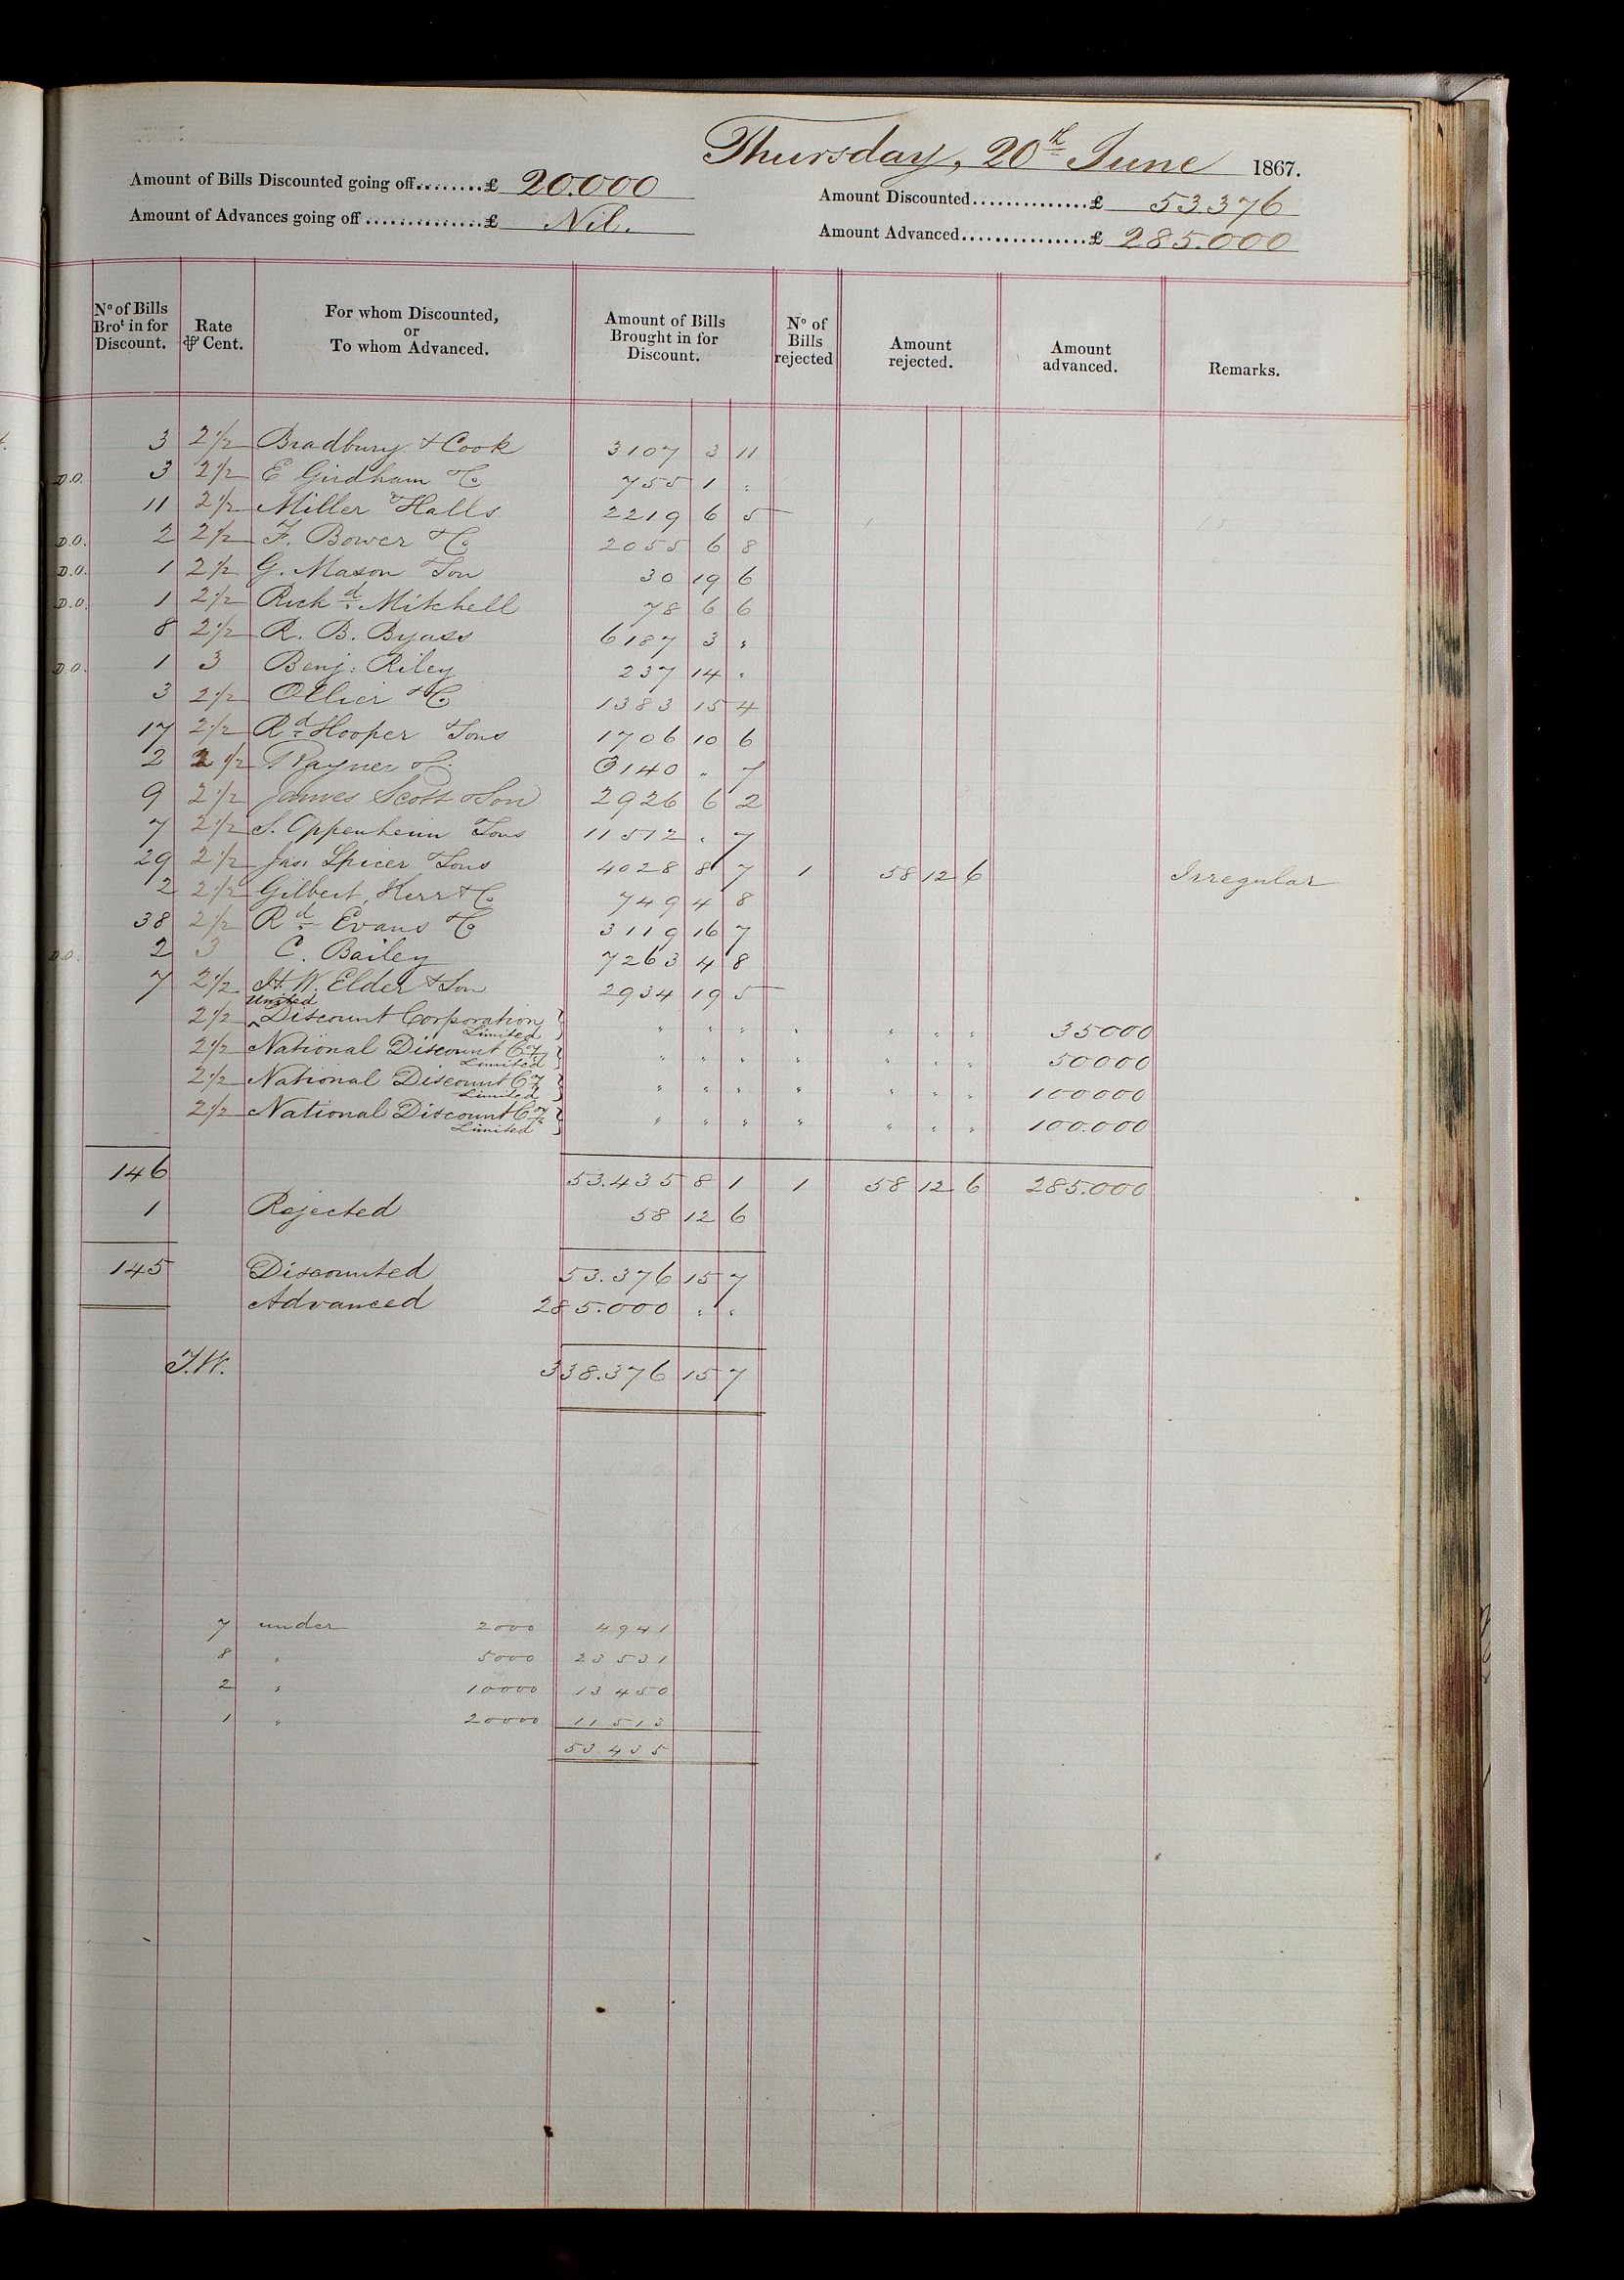 Thursday, 20th June 1867.
Amount of Bills Discounted going off........£ 20.000
Amount of Advances going off ..............£ Nil.
Amount Discounted..............£ 53376
Amount Advanced................£ 285.000
No of Bills Brot in for Discount. Rate ⅌ Cent. For whom Discounted, or To whom Advanced. Amount of Bills Brought in for Discount. No of Bills rejected Amount rejected. Amount advanced. Remarks.
3 2 1/2 Bradbury & Cook 3107 3 11
D.O. 3 2 1/2 E Girdham & Co 755 1 "
11 2 1/2 Miller & Halls 2219 6 5
D.O. 2 2 1/2 F. Bower & Co 2055 6 8
D.O. 1 2 1/2 G. Mason & Son 30 19 6
D.O. 1 2 1/2 Richd Mitchell 78 6 6
8 2 1/2 R. B. Byass 6187 3 "
D.O. 1 3 Benj: Riley 237 14 "
3 2 1/2 Ollier & Co 1383 15 4
17 2 1/2 Rd Hooper & Sons 1706 10 6
2 2 1/2 Rayner & Co 3140 " 7
9 2 1/2 James Scott & Son 2926 6 2
7 2 1/2 S. Oppenheim & Sons 11512 " 7
29 2 1/2 Jas. Spicer & Sons 4028 8 7 1 58 12 6 Irregular
2 2 1/2 Gilbert, Kerr & Co 749 4 8
38 2 1/2 Rd Evans & Co 3119 16 7
D.O. 2 3 C. Bailey 7263 4 8
7 2 1/2 H. W. Elder & Son 2934 19 5
2 1/2 United Discount Corporation Limited " " " " " " " 35000
2 1/2 National Discount Coy Limited " " " " " " " 50000
2 1/2 National Discount Coy Limited " " " " " " " 100000
2 1/2 National Discount Coy Limited " " " " " " " 100.000
146 53.435 8 1 1 58 12 6 285.000
1 Rejected 58 12 6
145 Discounted 53.376 15 7
Advanced 285.000 " "
J.W. 338.376 15 7
7 under 2000 4941
8 " 5000 23531
2 " 10000 13450
1 " 20000 11513
53435